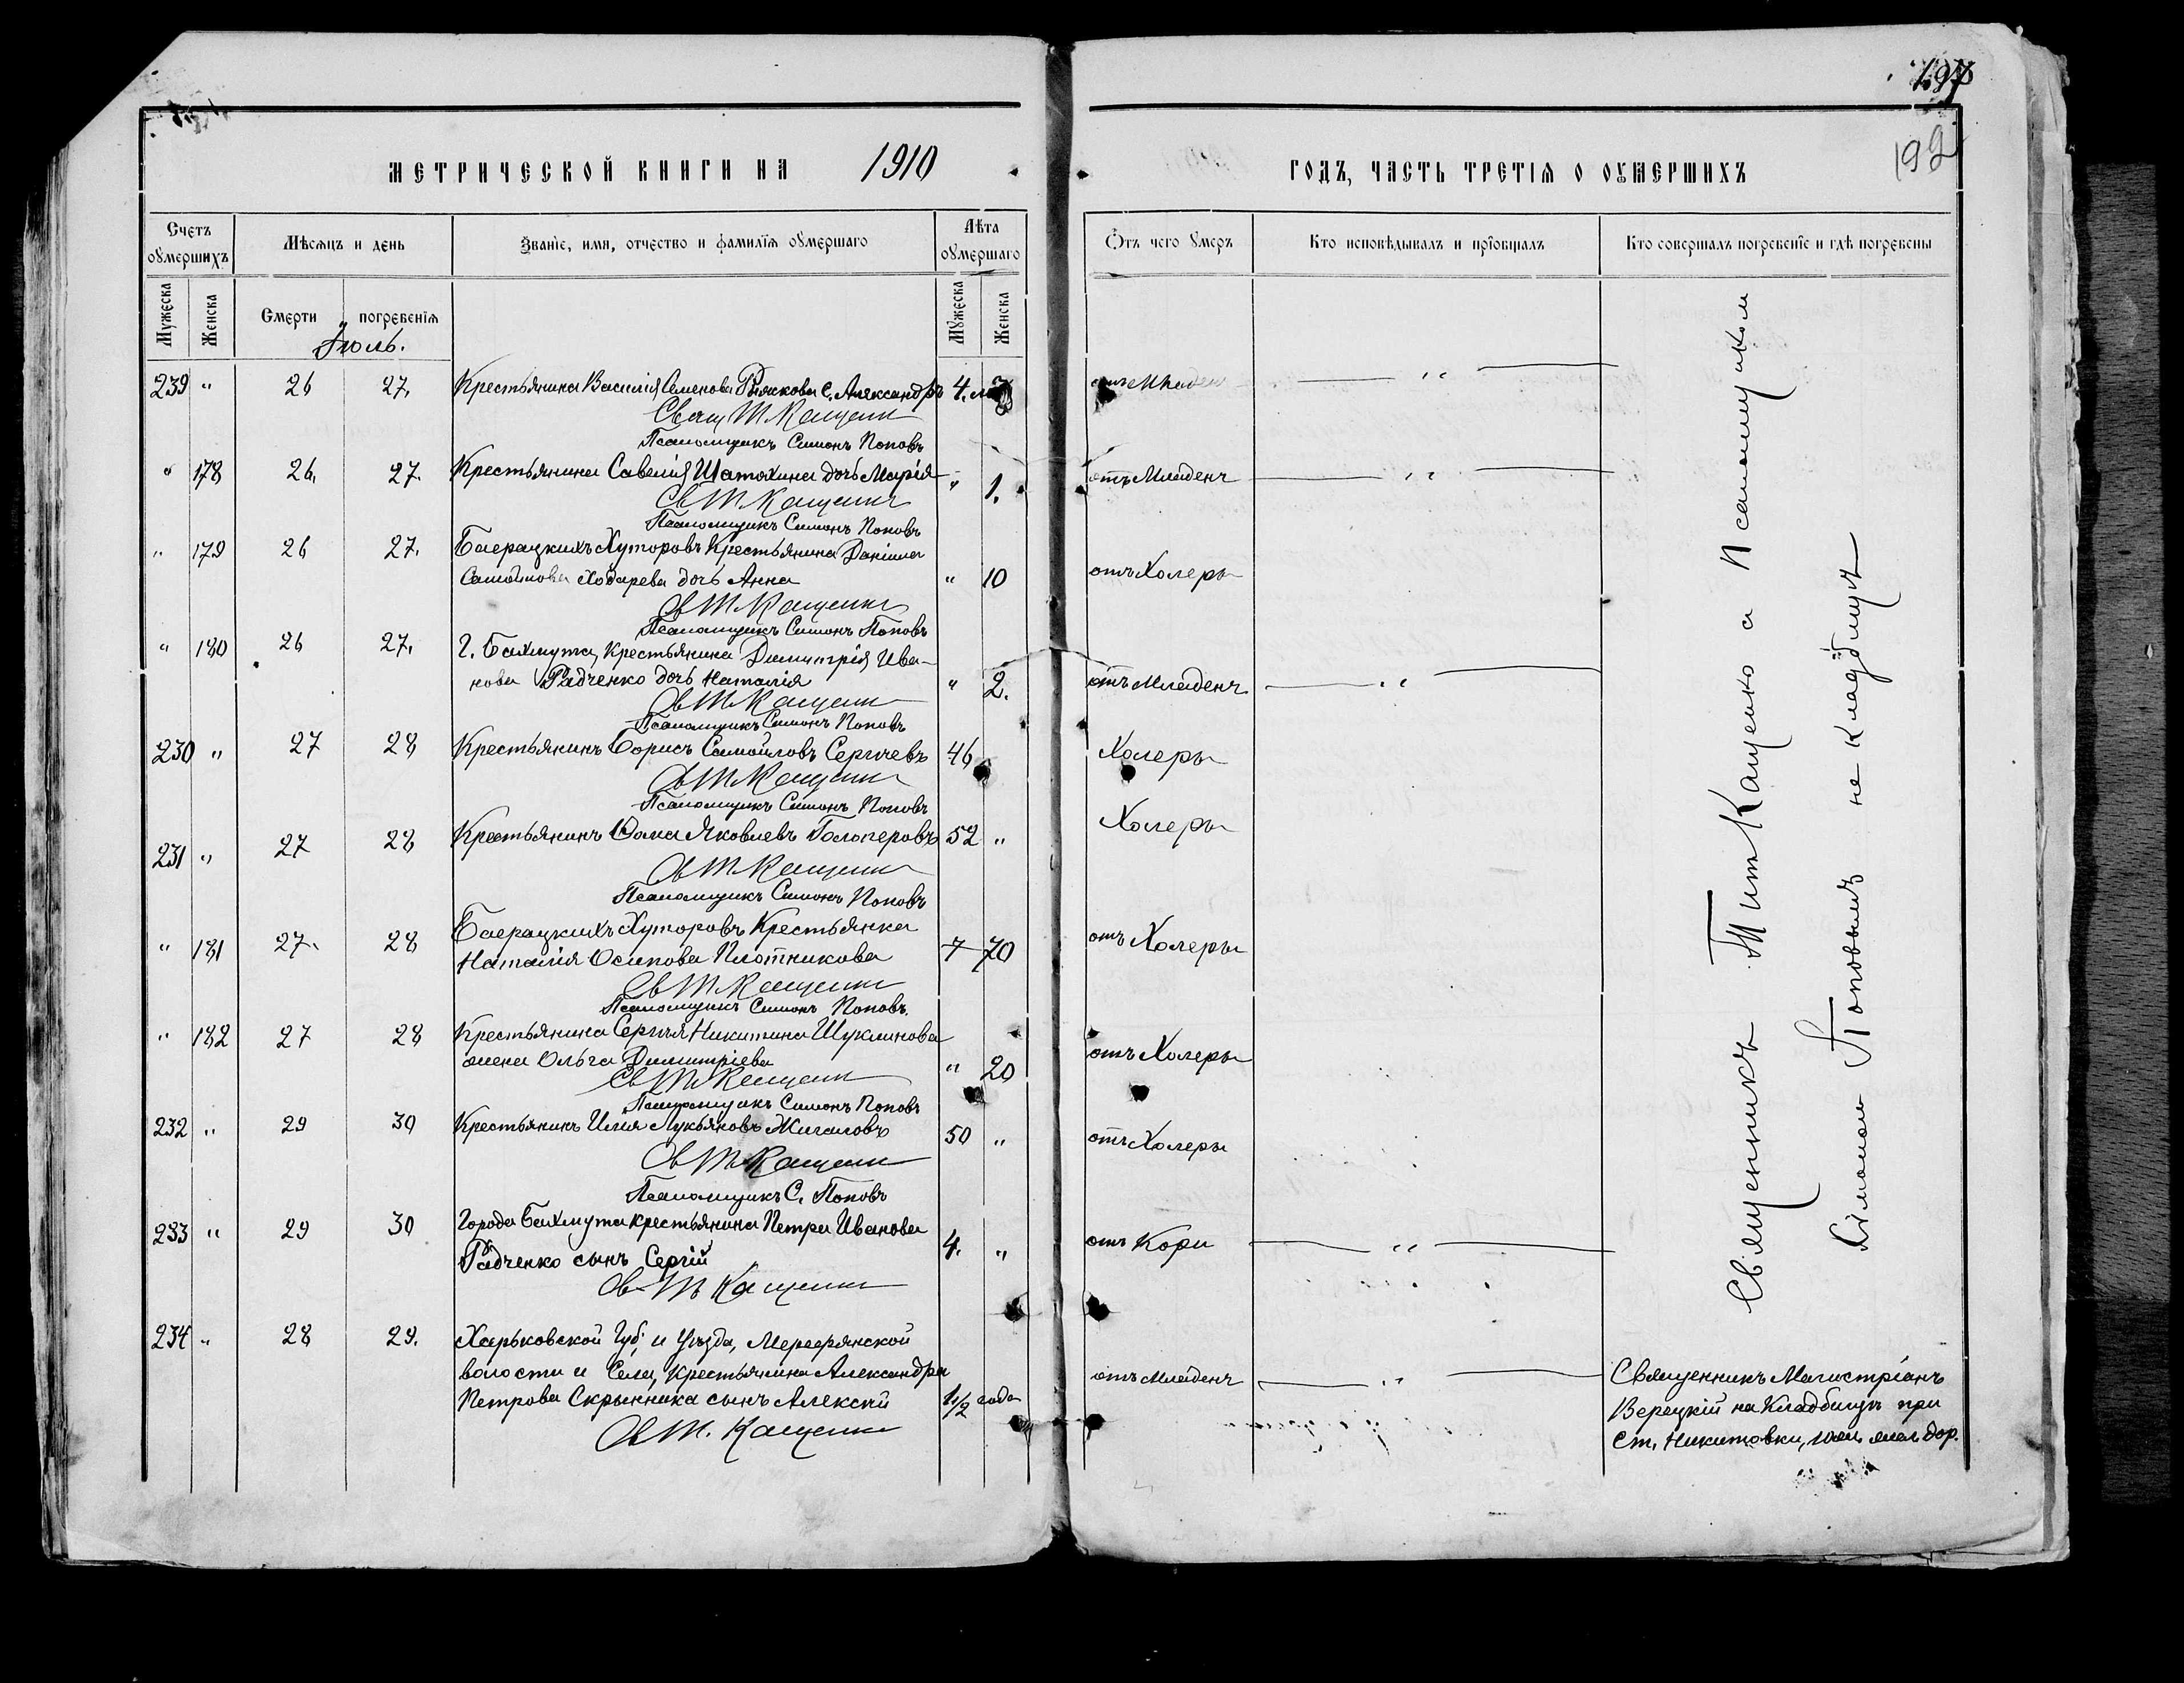 197
192
МЕТРИЧЕСКОЙ КНИГИ НА 1910
ГОДЪ, ЧАСТЬ ТРЕТІѦ О ОУМЕРШИХЪ
Счетъ оумершихъ
Мѣсѧцъ и день
Званіе, имя, отчество и фамиліѧ оумершаго
Лѣта оумершаго
Ѿтъ чего оумеръ
Кто исповѣдывалъ и пріобщалъ
Кто совершалъ погребеніе и гдѣ погребены
Мужеска
Женска
Смерти
погребеніѧ
Мужеска
Женска
Іюль.
239 " 26 27. Крестьянина Василія Семенова с. Александръ 4. отъ Младен "
Свящ Т Кащенко
Псаломщикъ Симонъ Поповъ
" 178 26. 27. Крестьянина Савелія Шатохина дочь Марія " 1. отъ Младенч "
Св Т Кащенко
Псаломщикъ Симонъ Поповъ
" 179 26 27. Баерацкихъ Хуторовъ Крестьянина Даніила
Самойлова Ходарева дочь Анна " 10 отъ Холеры
Св Т Кащенко
Псаломщикъ Симонъ Поповъ
" 180 26 27. Г. Бахмута, крестьянина Димитрія Ива-
нова Радченко дочь Наталія " 2. отъ Младенч "
Св Т Кащенко
Псаломщикъ Симонъ Поповъ
230 " 27 28 Крестьянинъ Борисъ Самойловъ Сергѣевъ 46 Холеры
Св Т Кащенко
Псаломщикъ Симонъ Поповъ
231 " 27 28 Крестьянинъ Фома Яковлевъ Голоперовъ 52 " Холеры
Св Т Кащенко
Псаломщикъ Симонъ Поповъ
" 181 27. 28 Баерацкихъ Хуторовъ Крестьянка
Наталія Осипова Плотникова 7 70 отъ Холеры
Св Т Кащенко
Псаломщикъ Симонъ Поповъ.
" 182 27 28 Крестьянина Сергѣя Никитина Шуклинова
жена Ольга Димитріева " 20 отъ Холеры
Св Т Кащенко
Псаломщикъ Симонъ Поповъ
232 " 29 30 Крестьянинъ Илія Лукьяновъ Жигаловъ 50 " отъ Холеры
Св Т Кащенко
Псаломщикъ С. Поповъ
233 " 29 30 Города Бахмута крестьянина Петра Иванова
Радченко сынъ Сергій 4. " отъ Кори "
Св Т Кащенко
234 " 28 29. Харьковской Губ. и Уѣзда, Мерефянской
волости и Села, Крестьянина Александра
Петрова Скрынника сынъ Алексѣй 1 1/2 года отъ Младенч "
Св Т. Кащенко
Священникъ Титъ Кащенко а Псаломщиком
Симоном Поповымъ на кладбищѣ
Священникъ Магистріанъ
Верецкій на Кладбищѣ при
Ст. Никитовки, южн. жел. дор.